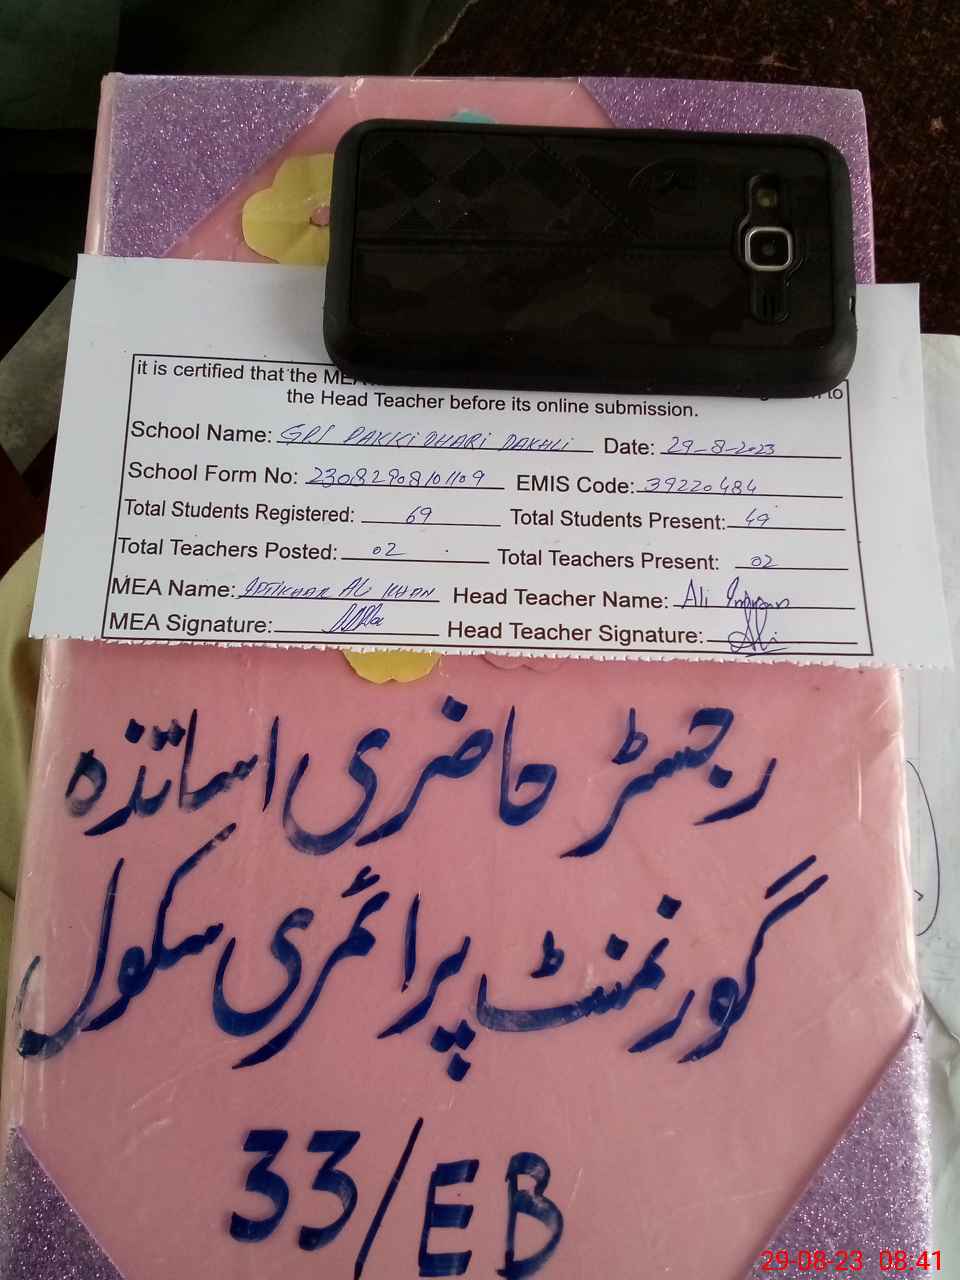 it is certified that the MEA to
the Head Teacher before its online submission.
School Name: GPS PAKKI DHARI DAKHLI Date: 29-8-2023
School Form No: 23082908101109 EMIS Code: 39220484
Total Students Registered: 69 Total Students Present: 49
Total Teachers Posted: 02 Total Teachers Present: 02
MEA Name: IFTIKHAR ALI KHAN Head Teacher Name: Ali
MEA Signature: Head Teacher Signature: Ali
رجسٹر حاضری اساتذہ
گورنمنٹ پرائمری سکول
33/EB
29-08-23 08:41